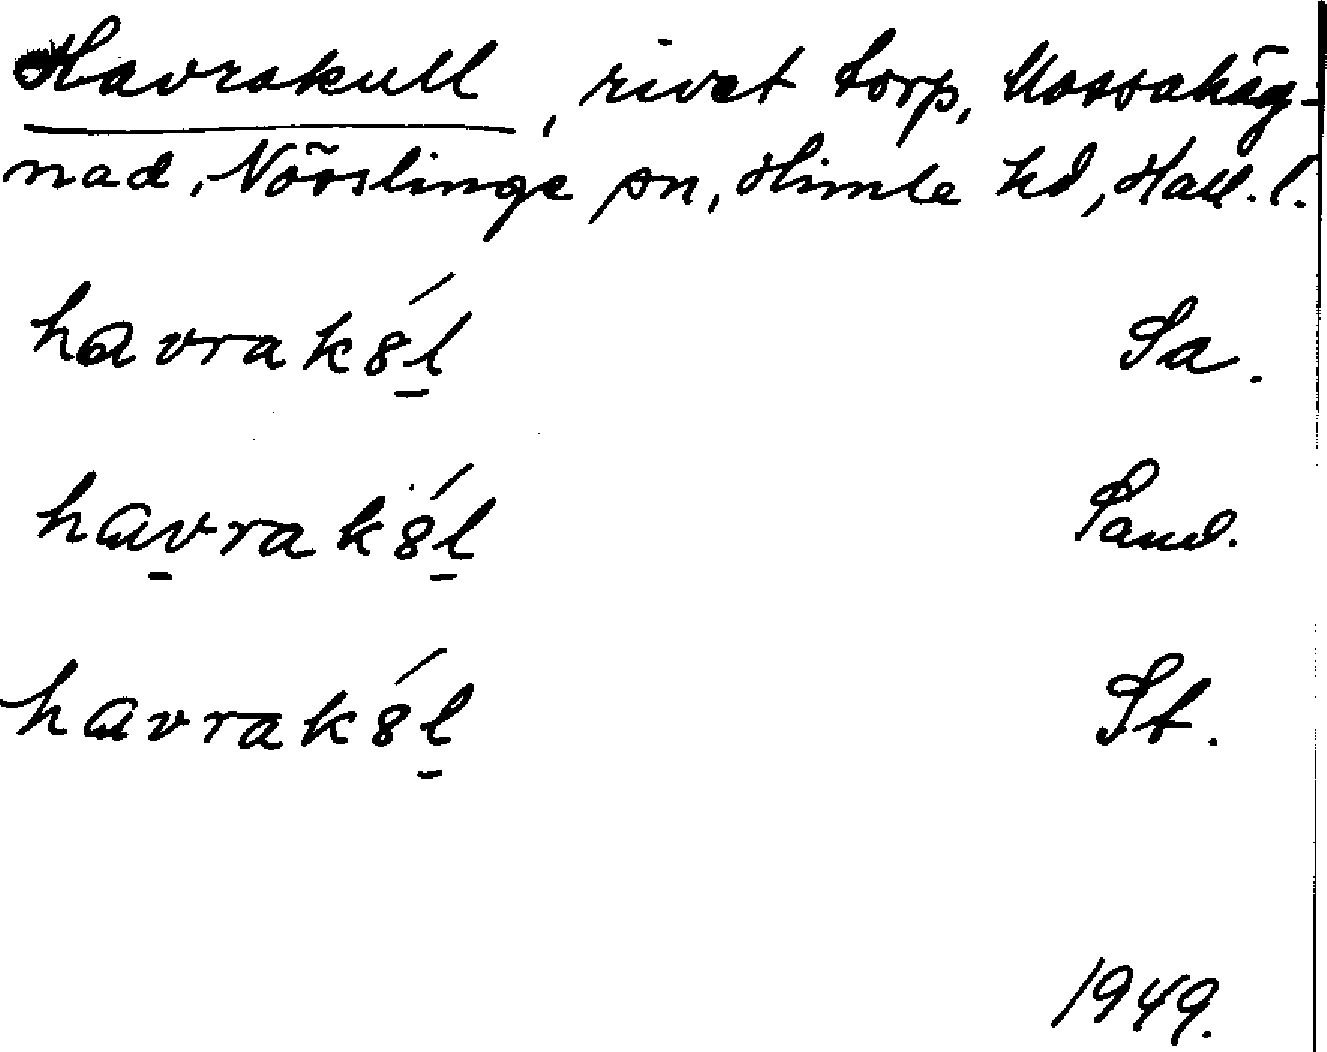 Havrakull, rivet torp, Mossahäg-
nad, Nösslinge sn, Himle hd, Hall. l.
havrakȣ́l Sa.
havrakȣ́l Sand.
havrakȣ́l St.
1949.